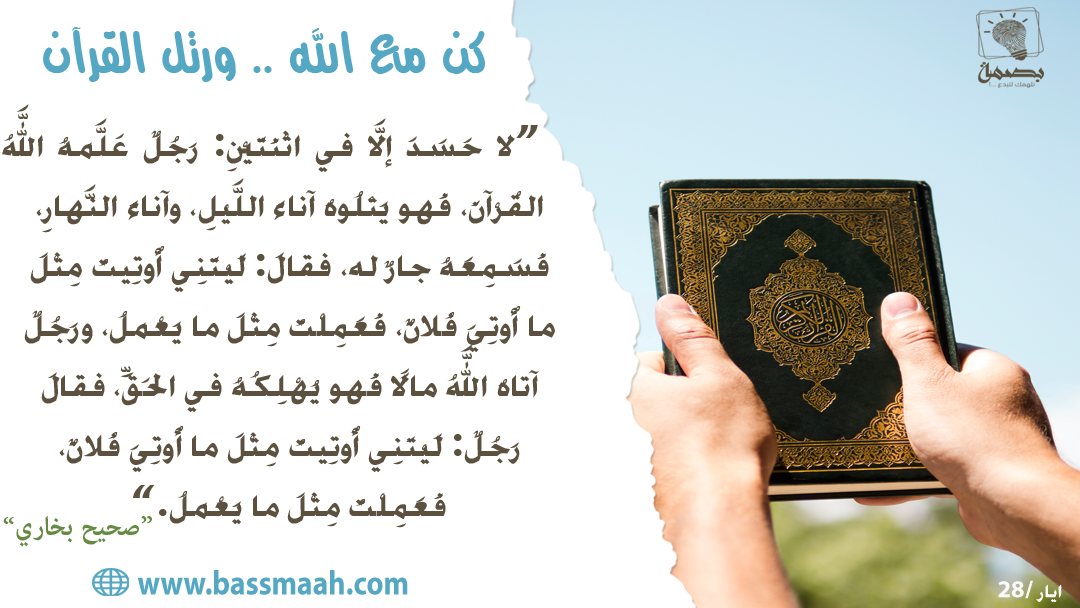 كن مع الله .. ورتل القرآن
”لا حَسَدَ إلَّا في اثْنَتَيْنِ: رَجُلٌ عَلَّمَهُ اللَّهُ
القُرْآنَ، فَهو يَتْلُوهُ آناءَ اللَّيلِ، وآناءَ النَّهارِ،
فَسَمِعَهُ جارٌ له، فقالَ: لَيتَنِي أُوتِيتُ مِثْلَ
ما أُوتِيَ فُلانٌ، فَعَمِلْتُ مِثْلَ ما يَعْمَلُ، ورَجُلٌ
آتاهُ اللَّهُ مالًا فَهو يُهْلِكُهُ في الحَقِّ، فقالَ
رَجُلٌ: لَيتَنِي أُوتِيتُ مِثْلَ ما أُوتِيَ فُلانٌ،
فَعَمِلْتُ مِثْلَ ما يَعْمَلُ.“
”صحيح بخاري“
www.bassmaah.com
بصمة
نلهمك لتبدع ...!
القرآن الكريم
28/ ايار